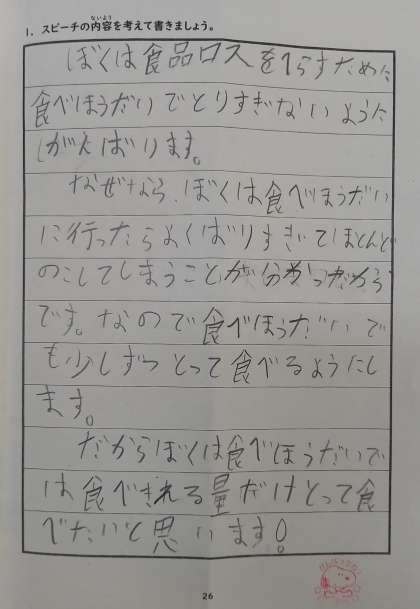 1. スピーチの内容を考えて書きましょう。
ないよう
ぼくは食品ロスをへらすために
食べほうだいでとりすぎないように
がんばります。
なぜなら、ぼくは食べほうだい
に行ったらよくばりすぎてほとんど
のこしてしまうことが分かったから
です。なので食べほうだいで
も少しずつとって食べるようにし
ます。
だからぼくは食べほうだいで
は食べきれる量だけとって食
べたいと思います!
26